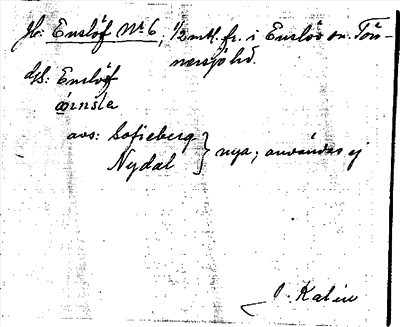 Hr: Enslöf Nr 6, 1/2 mtl. fr. i Enslöv sn. Tön-
nersjö hd.
dju: Enslöf
œ̄nsla
avs: Sofieberg
Nydal } nya; användas ej
J. Kalén